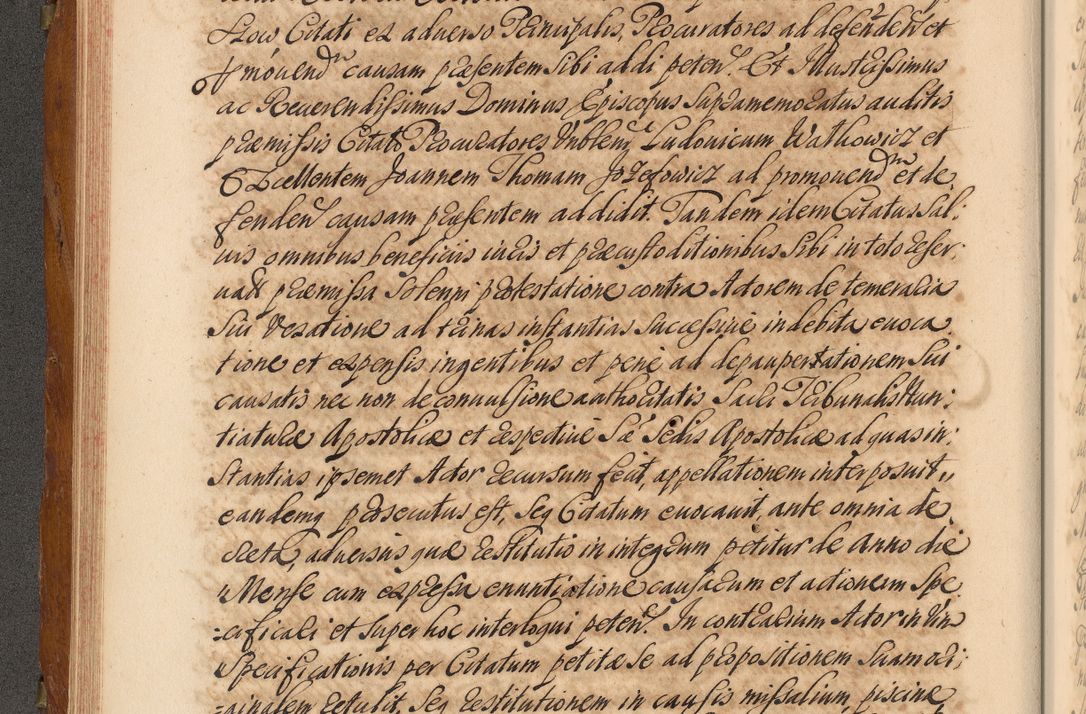 Slow Citati ex adverso Principalis, Procuratores ad defenden et
promovend causam præsentem sibi addi peten. Et Illustrissimus
ac Reverendissimus Dominus Episcopus Supramemoratus auditis
præmissis Citato Procuratores Ludovicum Wathowicz et
Excellentem Joannem Thomam Jozefowicz ad promovend et de,
fenden causam præsentem addidit. Tandem idem Citatus Sal,
vis omnibus beneficiis iuris et præcustoditionibus Sibi in toto reser,
vatis præmissa Solenni protestatione contra Actorem de temeraria
Sui vexatione ad trinas instantias successive indebita evoca,
tione et expensis ingentibus et pene ad depaupertationem Sui
causatis nec non de convulsione authoritatis Sacri Tribunalis Nun,
tiaturæ Apostolicæ et respective Sæ Sedis Apostolicæ ad quas in,
stantias ipsemet Actor recursum fecit, appellationem interposuit,,
eandemq prosecutus est, Seq Citatum evocavit, ante omnia de
creta, adversus quæ restitutio in integrum petitur de Anno die
Mense cum expressa enuntiatione causarum et actionem Spe,
cificari et super hoc interloqui peten. In contrarium Actor in vim
Specificationis per Citatum petitæ Se ad propositionem Suam ori,
ginalem retulit, Seq restitutionem in causis missalium, piscinæ